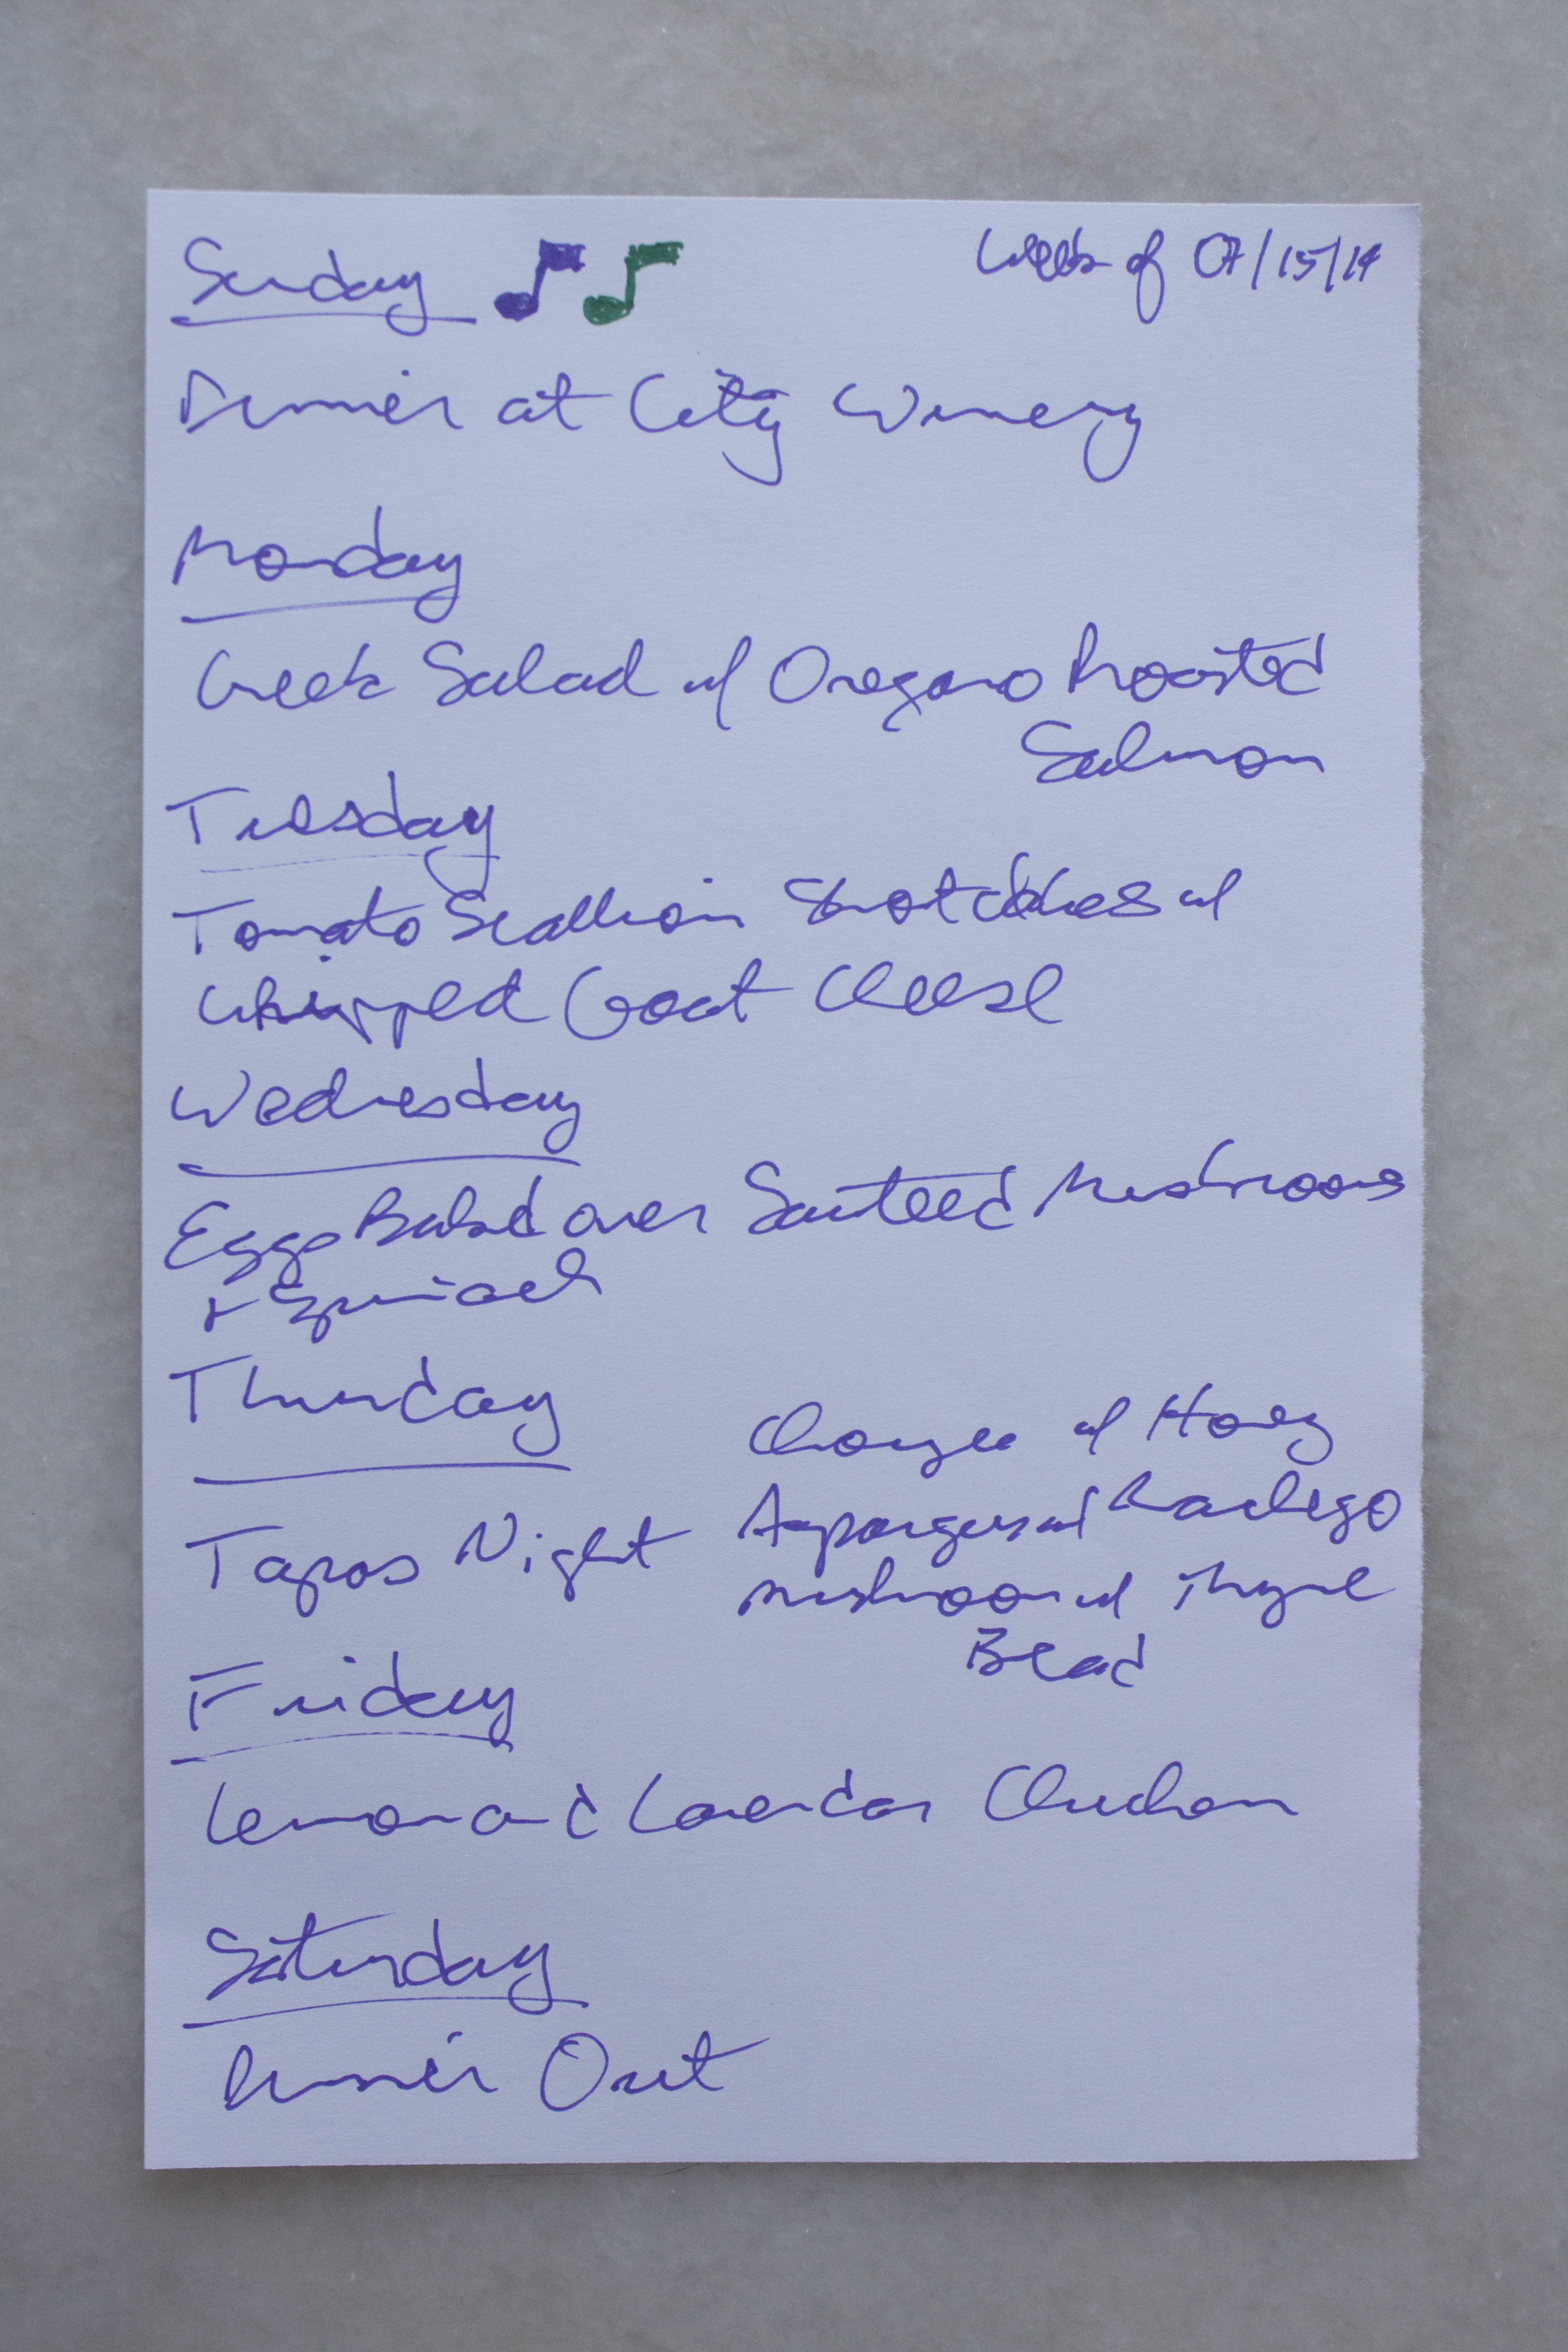 Sunday
Week of 07/15/14
Dinner at City Winery
Monday
Greek Salad w/ Oregano Roasted
Salmon
Tuesday
Tomato Scallion Shortcakes w/
Whipped Goat Cheese
Wednesday
Eggs Baked over Sauteed Mushrooms
+ Spinach
Thursday
Tapas Night
w/ Honey
Asparagus w/
Mushroom w/ Thyme
Bread
Friday
Lemon and Lavendar Chicken
Saturday
Dinner Out